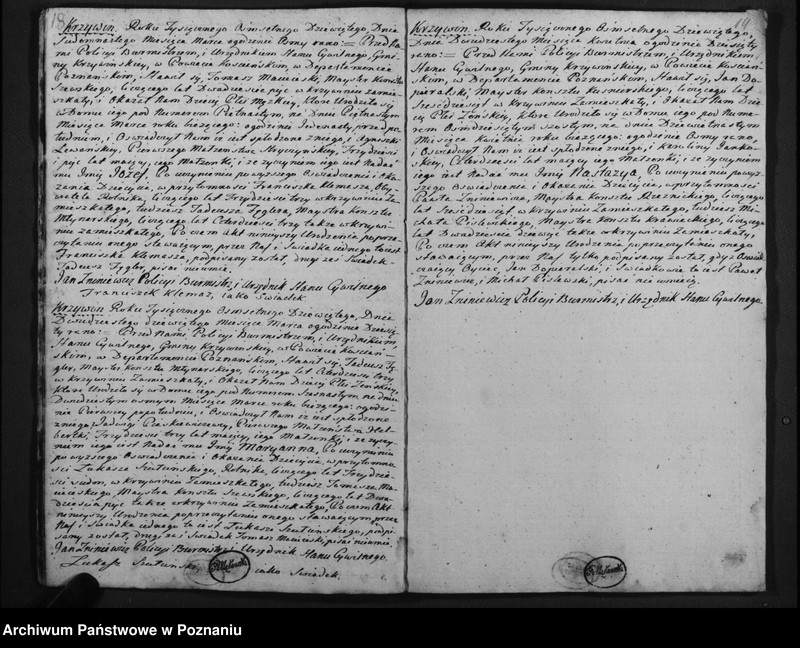 18
Krzywin. Roku Tysiącznego Osmsetnego Dziewiątego, Dnia
Miesiąca Marca ogodzinie Osmy rano := Przed Na
mi Policyi Burmistrzem, i Urzędnikiem Stanu Cywilnego, Gmi
ny Krzywińskiey, w Powiecie Kościańskim, w Departamencie
Poznańskim, Stawił się, Tomasz Macieiski, Mayster Konsztu
Szewskiego, liczącego lat Dwadziescia pięć w Krzywiniu zamie
szkały, i Okazał Nam Dziecię Płci Męzkiey, które Urodziło się
w Domu iego pod Numerem Piętnastym, na Dniu Piętnastym
Miesiąca Marca roku bieżącego: ogodzinie przed po
łudniem, i Oswiadczył Nam że iest spłodzone zniego, i
Lewandowskiey, Pierwszego Małżeństwa, Trzydziesci
i pięć lat maiący, iego Małżonki; i że życzeniem iego iest Nadać
mu Imię Jozef. Po uczynieniu powyższego Oswiadczenia i Oka
zania Dziecięcia, w przytomnosci Franciszka Klemasza, Oby
watela Rolnika, liczącego lat Trzydziesci trzy w Krzywiniu Za
mieszkałego, tudziesz Tadeusza Tyglera, Maystra Konsztu
Młynarskiego, liczącego lat Czterdziesci trzy także w Krzywi
niu zamieszkałego, Po czem Akt ninieyszy Urodzenia poprze
czytaniu onego stawaiącym, przez Nas i Swiadka iednego to iest
Franciszka Klemasza, podpisany został, drugi zas Swiadek
Tadeusz Tygler pisać nieumie.
Jan Zniniewicz Policyi Burmistrz, i Urzędnik Stanu Cywilnego
Franciszek Klemaz, iako Swiadek
Krzywin. Roku Tysiącznego Osmsetnego Dziewiątego, Dnia
Dwudziestego dziewiątego Miesiąca Marca ogodzinie Dziesią
ty rano := Przed Nami Policyi Burmistrzem, i Urzędnikiem,
Stanu Cywilnego, Gminy Krzywińskiey, w Powiecie Kościań
skim, w Departamencie Poznańskim, Stawił się, Tadeusz Ty
gler, Mayster Konsztu Młynarskiego, liczącego lat Czterdziesci trzy
w Krzywiniu Zamieszkały, i Okazał Nam Dziecię Płci Zońskiey,
które Urodziło się w Domu iego pod Numerem Szesnastym, na dniu
Dwudziestym osmym Miesiąca Marca roku bieżącego: ogodzi
nie Pierwszey popołudniu, i Oswiadczył Nam że iest spłodzone
zniego, i Jadwigi Pieskiewiczowy, Pierwszego Małżeństwa
Trzydziesci trzy lat maiący, iego Małżonki; i że życze
niem iego iest Nadać mu Imię Maryanna, Po uczynieniu
powyższego Oswiadczenia i Okazania Dziecięcia, w przytomno
sci Łukasza Szutuńskiego, Rolnika, liczącego lat Trzydzie
sci siedm, w Krzywiniu Zamieszkałego, tudziesz Tomasza Ma
cieiskiego, Maystra Konsztu Szewskiego, liczącego lat Dwa
dziescia pięć także w Krzywiniu Zamieszkałego, Po czem Akt
ninieyszy Urodzenia poprzeczytaniu onego stawaiącym, przez
Nas i Swiadka iednego to iest Łukasza Szutuńskiego, podpi
sany został, drugi zas Swiadek Tomasz Macieiski pisać nieumie.
Jan Zniniewicz Policyi Burmistrz, i Urzędnik Stanu Cywilnego.
Łukasz Szutunski iako Swiadek.
19
Krzywin. Roku Tysiącznego Osmsetnego Dziewiątego,
Dnia Dziesiątego Miesiąca Kwietnia ogodzinie Dziesiąty
rano := Przed Nami Policyi Burmistrzem, i Urzędnikiem,
Stanu Cywilnego, Gminy Krzywińskiey, w Powiecie Kościań
skim, w Departamencie Poznańskim, Stawił się, Jan Do
pieralski, Mayster Konsztu Kusnierskiego, liczącego lat
Szescdziesiąt w Krzywiniu Zamieszkały, i Okazał Nam Dzie
cię Płci Zońskiey, które Urodziło się w Domu iego pod Nume
rem Osmdziesiątym szostym, na dniu Dziewiątym
Miesiąca Kwietnia roku bieżącego: ogodzinie Osmy rano,
i Oswiadczył Nam że iest spłodzone zniego, i Karoliny
Czterdziesci lat maiący iego Małżonki; i że życzeniem
iego iest Nadać mu Imię Nastazya, Po uczynieniu powyż
szego Oswiadczenia i Okazania Dziecięcia, w przytomnosci
Pawła Zniniewicza, Maystra Konsztu Rzeznickiego, liczącego
lat Szescdziesiąt, w Krzywiniu Zamieszkałego, tudziesz Mi
chała Pislewskiego, Maystra Konsztu Krawieckiego, liczącego
lat Dwadziescia dziewięć także w Krzywiniu Zamieszkałego,
Po czem Akt ninieyszy Urodzenia poprzeczytaniu onego
stawaiącym, przez Nas tylko podpisany został, gdyż Oswiad
czaiący Oyciec, Jan Dopieralski, i Swiadkowie to iest Paweł
Zniniewicz, i Michał Pislewski, pisać nie umieią.
Jan Zniniewicz Policyi Burmistrz, i Urzędnik Stanu Cywilnego.
Archiwum Państwowe w Poznaniu